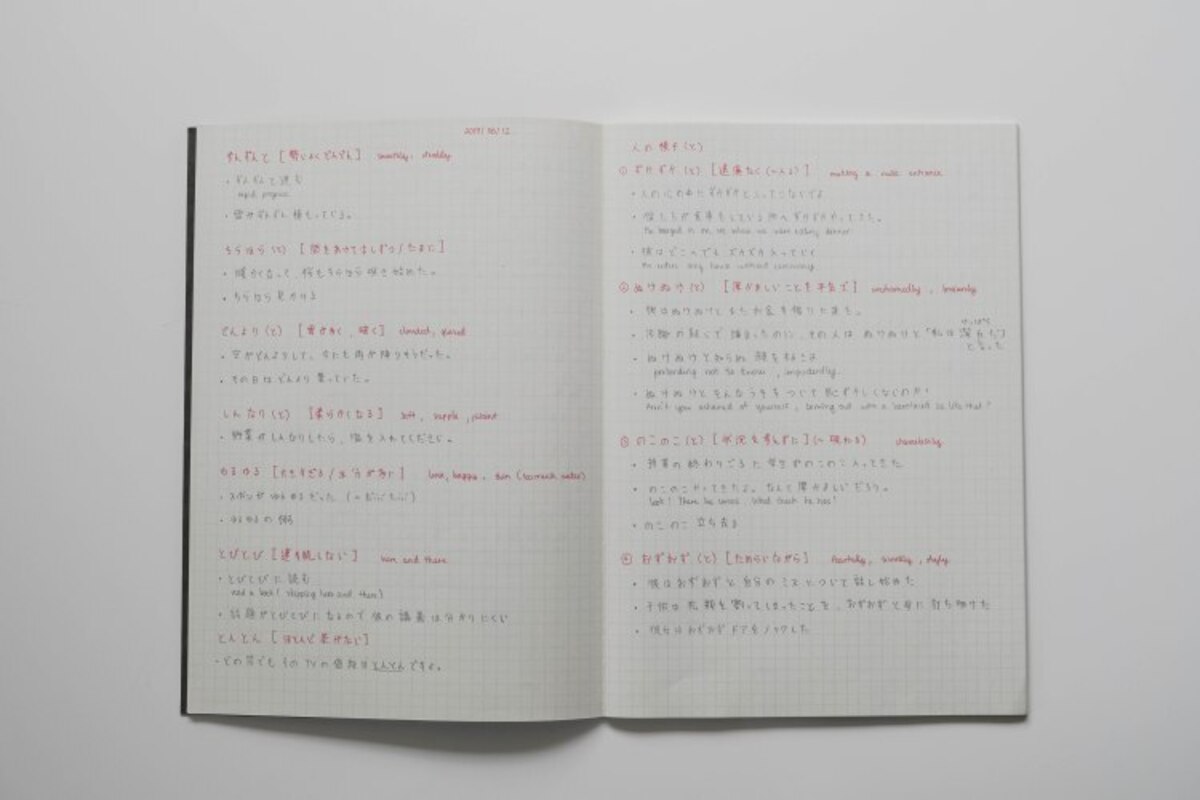 2019/06/12
ずんずんと [勢いよくどんどん] smoothly, steadily
・ずんずんと進む
rapid progress
・雪がずんずん積もっている。
ちらほら(と) [間をあけて少しずつ/たまに]
・暖かくなって、桜もちらほら咲き始めた。
・ちらほら見かける
どんより(と) [雲が多く、暗く] clouded, glazed
・空がどんよりして、今にも雨が降りそうだった。
・その日はどんより曇っていた。
しんなり(と) [柔らかくなる] soft, supple, pliant
・野菜がしんなりしたら、塩を入れてください。
ゆるゆる [大きすぎる/水分が多い] loose, baggy, thin (too much water)
・ズボンがゆるゆるだった (=だぶだぶ)
・ゆるゆるの粥
とびとび [連続しない] here and there
・とびとびに読む
read a book (skipping here and there)
・話題がとびとびになるので彼の講義は分かりにくい
とんとん [ほとんど差がない]
・どの店でもそのTVの値段はとんとんですよ。
人の様子(と)
① ずけずけ(と) [遠慮なく(〜入る)] making a rude entrance
・人の心の中にずけずけと入ってこないでよ
・僕たちが食事をしている所へずけずけやってきた。
He barged in on us when we were eating dinner.
・彼はどこへでもズカズカ入っていく
He enters any place without ceremony.
② ぬけぬけ(と) [厚かましいことを平気で] unashamedly, brazenly
・彼はぬけぬけとまたお金を借りに来た。
その人はぬけぬけと「私は潔白だ」
けっぱく
と言った
・ぬけぬけと知らぬ顔をする
pretending not to know, impudently.
・ぬけぬけとそんなうそをついて恥ずかしくないのか！
Aren't you ashamed of yourself, coming out with a barefaced lie like that?
③ のこのこ(と) [状況を考えずに](〜現れる)
・授業の終わりごろに学生がのこのこ入ってきた
・のこのこやってきたよ。なんて厚かましいだろう。
Look! There he comes. What cheek he has!
・のこのこ立ち去る
④ おずおず(と) [ためらいながら] fearfully, timidly, shyly
・彼はおずおずと自分のミスについて話し始めた
・子供は花瓶を割ってしまったことを、おずおずと母に打ち明けた
・彼女はおずおずドアをノックした